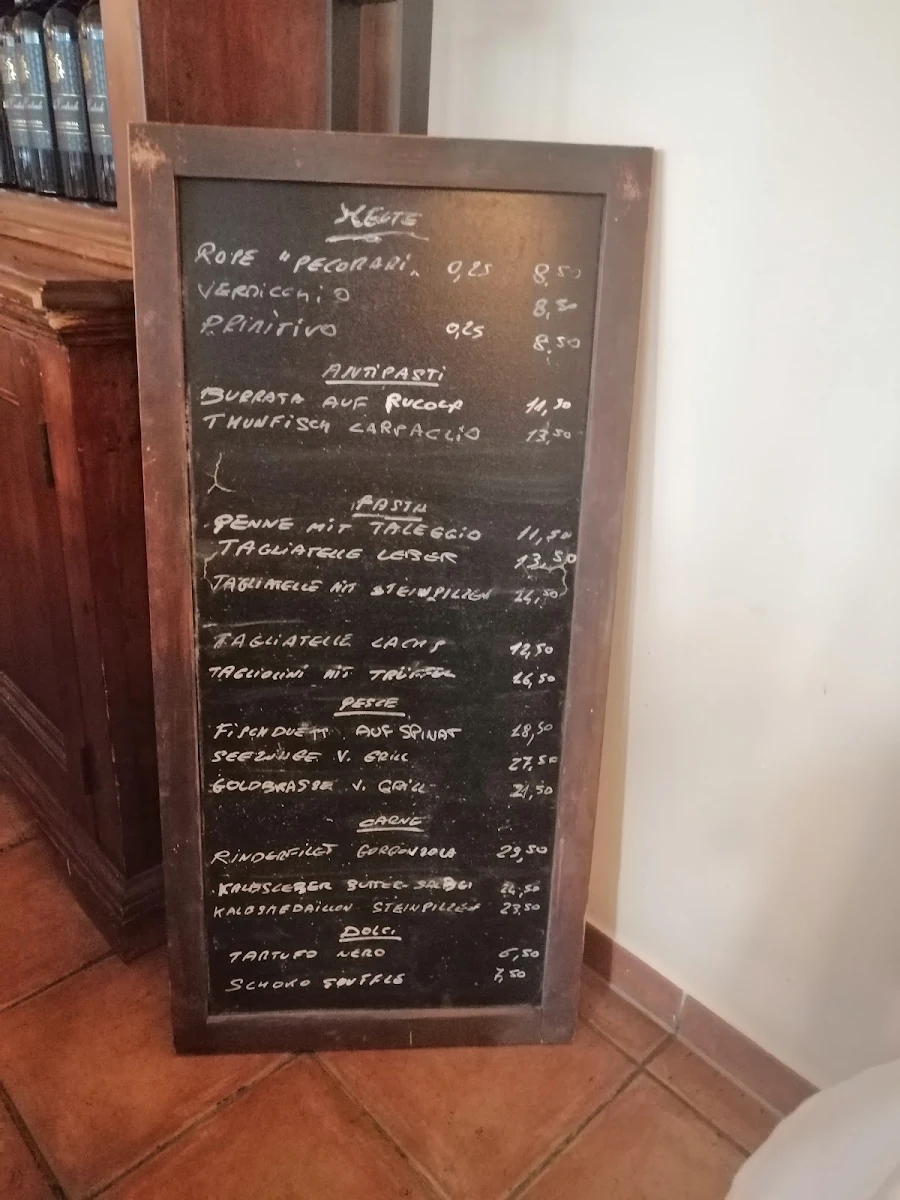 HEUTE
ROPE "PECORARI" 0,25 8,50
VERDICCHIO 8,50
PRIMITIVO 0,25 8,50
ANTIPASTI
BURRATA AUF RUCOLA 11,50
THUNFISCH CARPACCIO 13,50
PASTA
PENNE MIT TALEGGIO 11,50
TAGLIATELLE LEBER 13,50
TAGLIATELLE MIT STEINPILZEN 14,50
TAGLIATELLE LACHS 12,50
TAGLIOLINI MIT TRÜFFEL 16,50
PESCE
FISCHDUETT AUF SPINAT 18,50
SEEZUNGE V. GRILL 27,50
GOLDBRASSE V. GRILL 21,50
CARNE
RINDERFILET GORGONZOLA 29,50
KALBSLEBER BUTTER-SALBEI
KALBSMEDAILLON STEINPILZEN 23,50
DOLCI
TARTUFO NERO 6,50
SCHOKO SOUFFLE 7,50